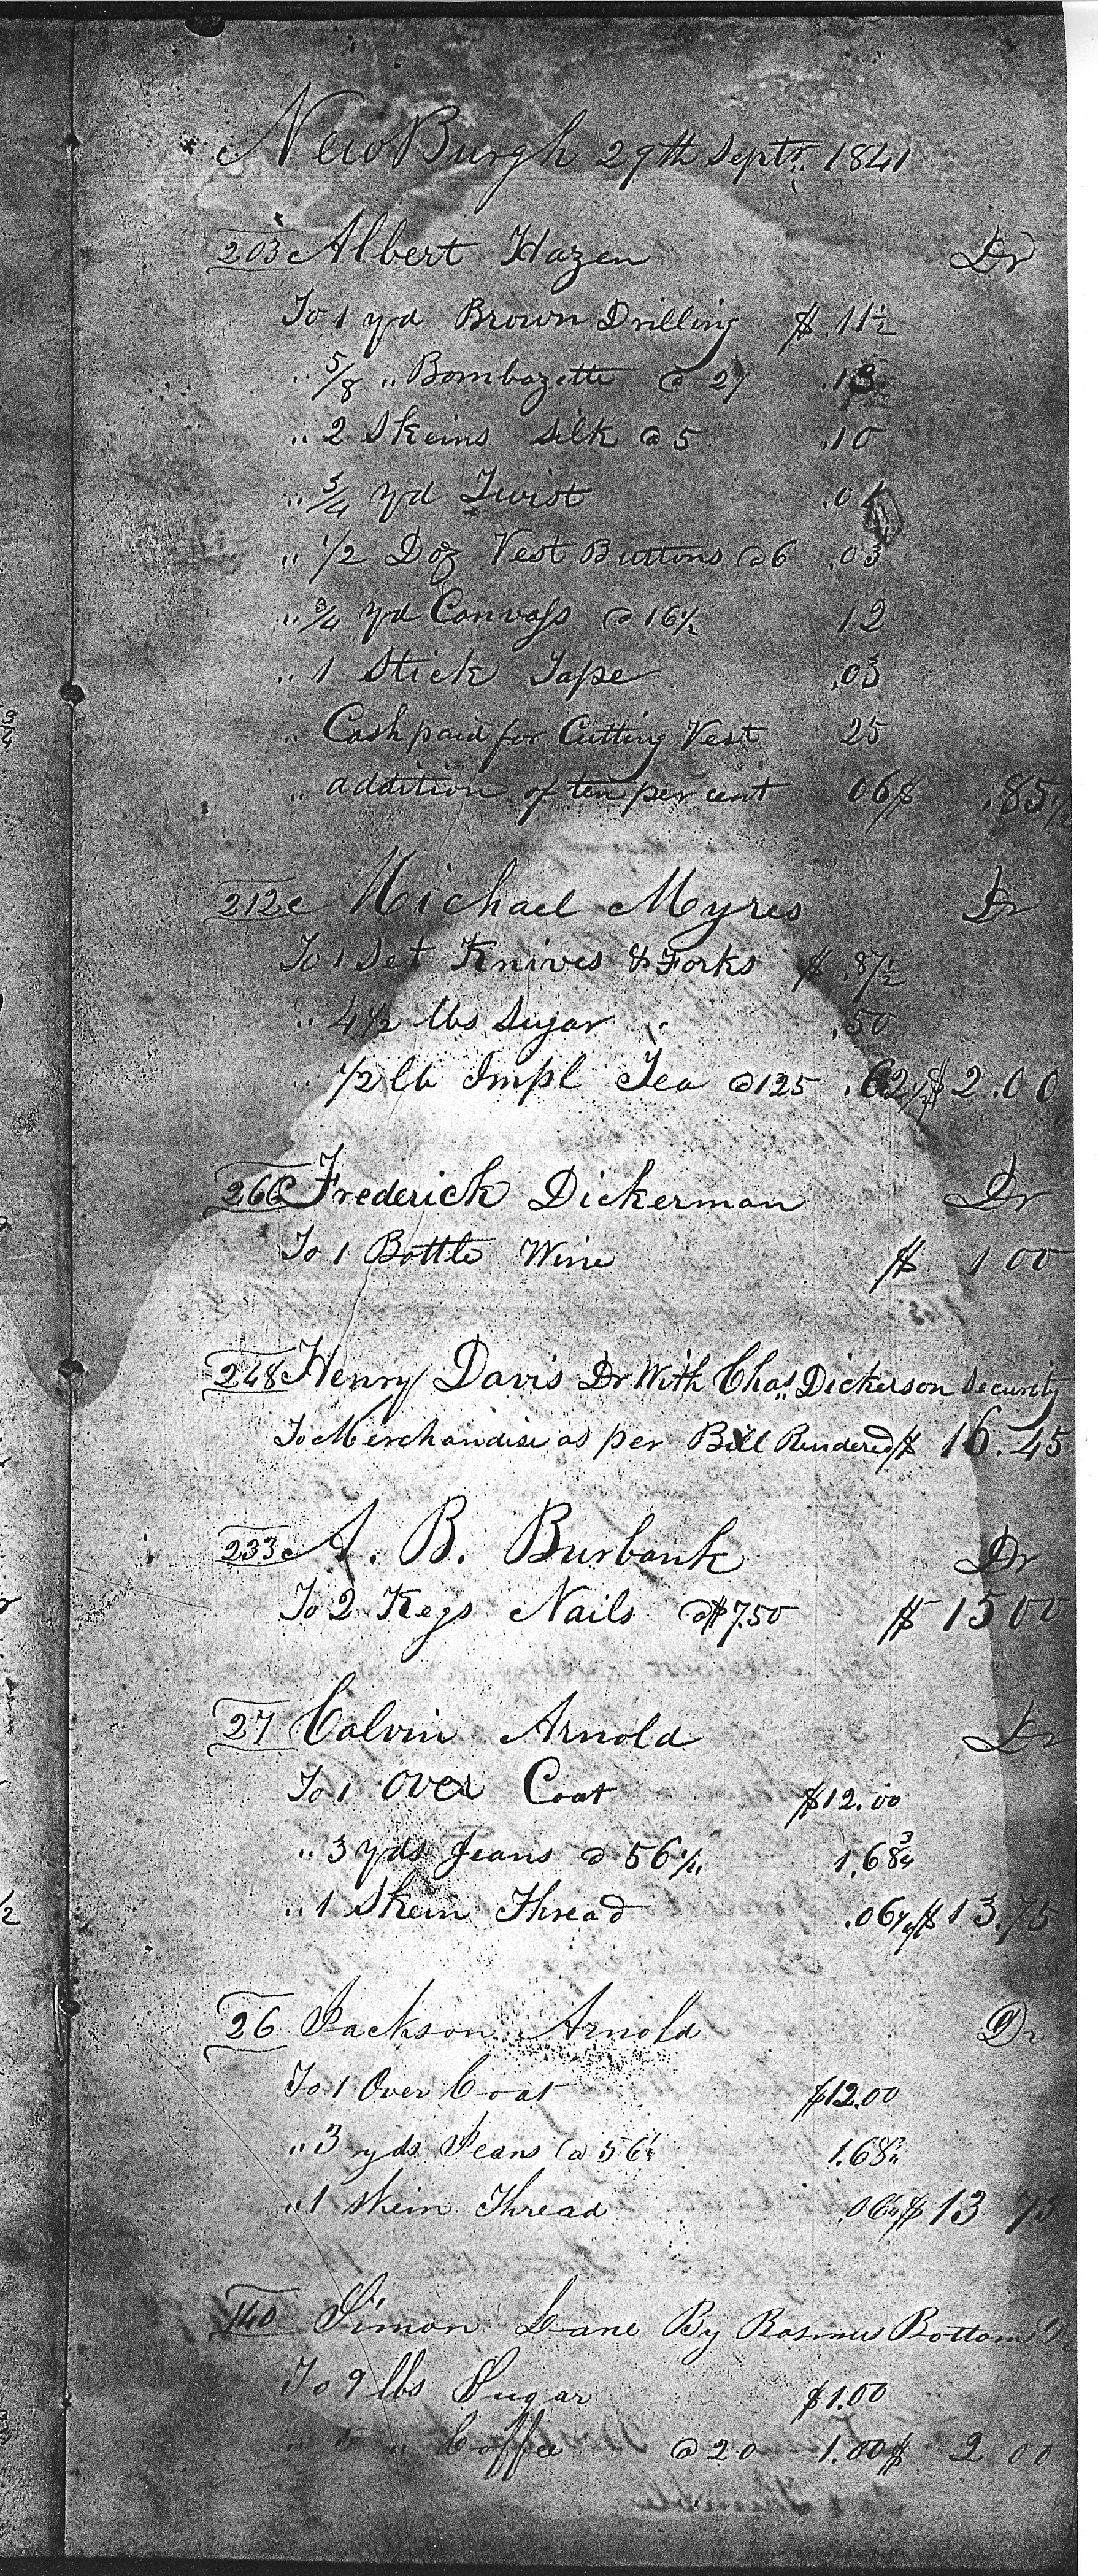 NewBurgh 29th Septr. 1841
203 Albert Hazen Dr
To 1 yd Brown Drilling $ .11 1/2
" 5/8 " Bombazette @ 27
" 2 Skeins Silk @ 5 .10
" 3/4 yd Twist
" 1/2 Doz Vest Buttons @ 6 .03
" 3/4 yd Canvass @ 16 1/2 12
" 1 Stick Tape .03
" Cash paid for Cutting Vest 25
" addition of ten per cent 06 $ .85 1/2
212 Michael Myres Dr
To 1 Set Knives & Forks $ .87 1/2
" 4 1/2 lbs Sugar .50
" 1/2 lb Impl Tea @ 125 .62 1/2 $ 2.00
266 Frederick Dickerman Dr
To 1 Bottle Wine $ 1 00
248 Henry Davis Dr With Chas. Dickerson Security
To Merchandise as per Bill Rendered $ 16.45
233 A. B. Burbank Dr
To 2 Kegs Nails @ $7.50 $ 15 00
27 Calvin Arnold Dr
To 1 Over Coat $12.00
" 3 yds Jeans @ 56 1/4 1.68 3/4
" 1 Skein Thread .06 1/4 $ 13.75
26 Jackson Arnold Dr
To 1 Over Coat $12.00
" 3 yds Jeans @ 56 1/4 1.68 3/4
" 1 Skein Thread .06 1/4 $ 13 75
140 Simon Lane By Rasmus Bottoms Dr
To 9 lbs Sugar $1.00
" 5 " Coffee @ 20 1.00 $ 2 00